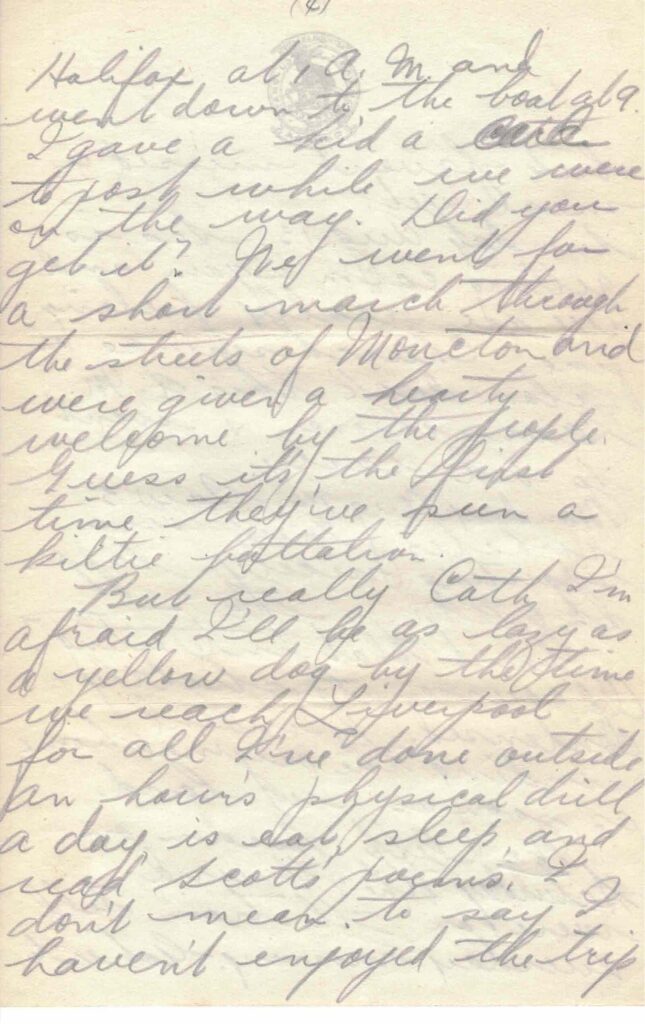 (4)
Halifax at 1 A. M. and
went down to the boat at 9.
I gave a kid a card
to post while we were
on the way. Did you
get it? We went for
a short march through
the streets of Moncton and
were given a hearty
welcome by the people.
Guess it's the first
time they've seen a
kiltie battalion.
But really Cath I'm
afraid I'll be as lazy as
a yellow dog by the time
we reach Liverpool
for all I've done outside
an hour's physical drill
a day is eat, sleep, and
read Scott's poems. I
don't mean to say I
haven't enjoyed the trip